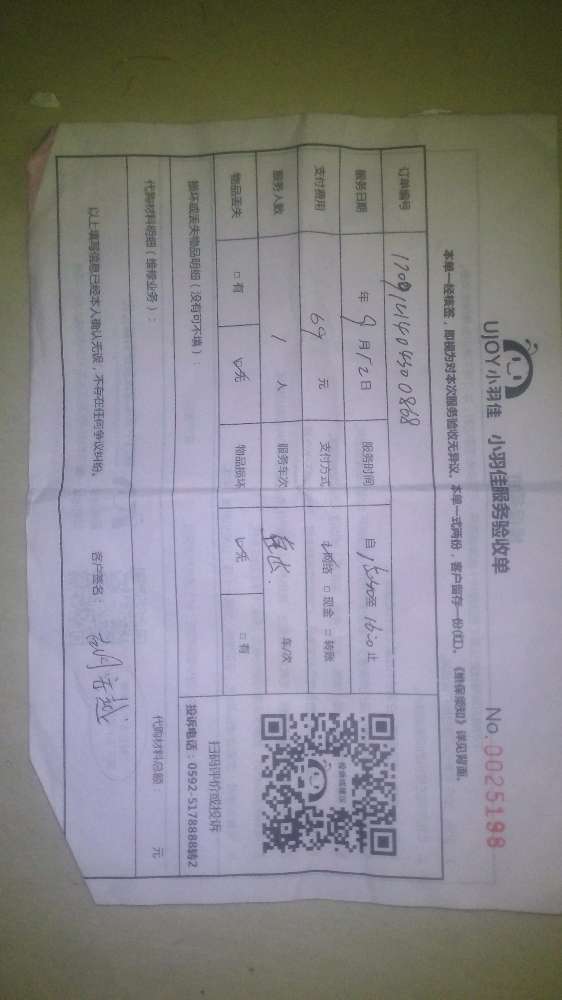 UJOY小羽佳 小羽佳服务验收单 No.0025198
本单一经核签，即视为对本次服务验收无异议，本单一式两份，客户留存一份(红)，《维保须知》详见背面。
订单编号
服务日期 年 9 月 12 日 服务时间 自 15:00 至 16:00 止
支付费用 69 元 支付方式 网络 □ 现金 □ 转账
服务人数 1 人 服务车次 年/次
物品丢失 □ 有 无 物品损坏 无 □ 有
投诉或建议
扫码评价或投诉
投诉电话：0592-5178888转2
损坏或丢失物品明细（没有可不填）：
代购材料明细（维修业务）： 代购材料总额： 元
以上填写信息已经本人确认无误，不存在任何争议纠纷。 客户签名：